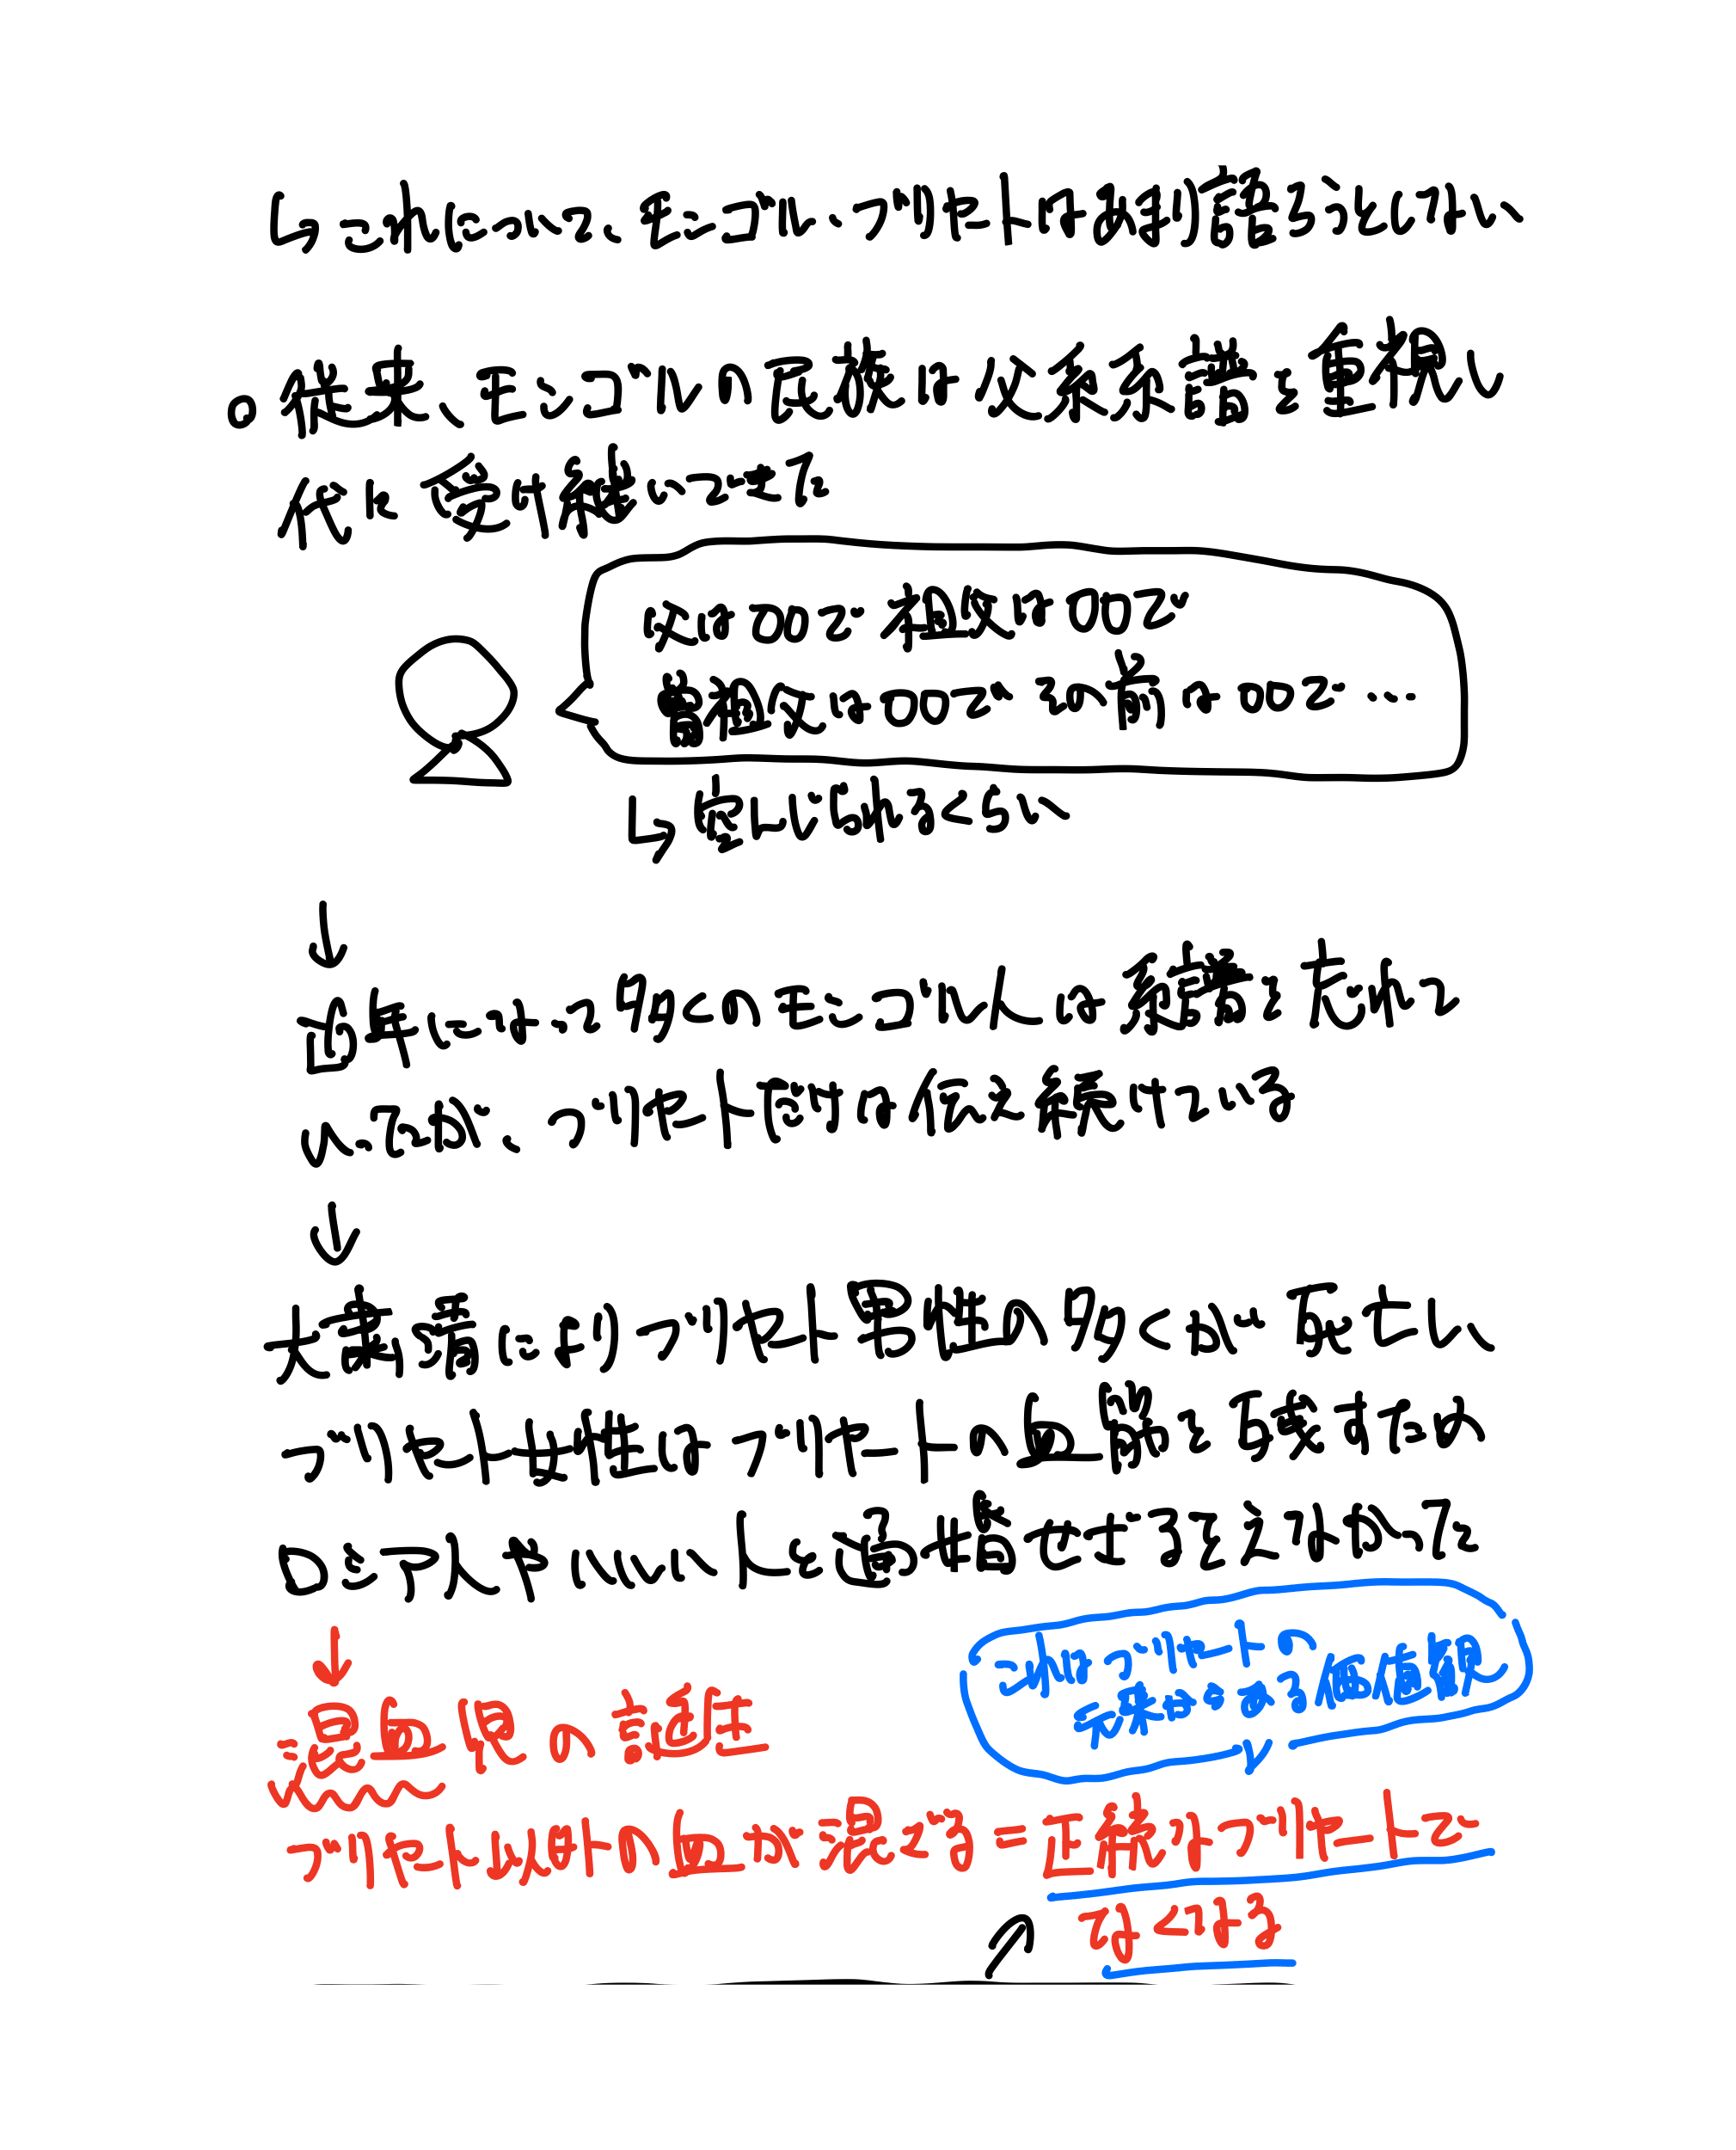 ↳これについて、モンゴル・ブリヤートはあまり語ろうとしない
。従来、モンゴルの氏族は父系系譜を重視し
代に受け継いできた
父は〇〇で 祖父は〇〇で
曽祖父は〇〇で その前は〇〇で…
↳空んじられるくらい
↓
近年になって多くのモンゴル人は系譜を忘れて
いったが、ブリヤートだけは伝え続けている
↓
大粛清によりブリヤート男性の多くが死亡し、
ブリヤート女性はブリヤートの血筋を残すため
ロシア人やいい人と過ごせざるをえなかった
↓
混血児の誕生
これはブリヤートの
父系における価値観
ブリヤート以外の血が混ざる=正統なブリヤートで
なくなる